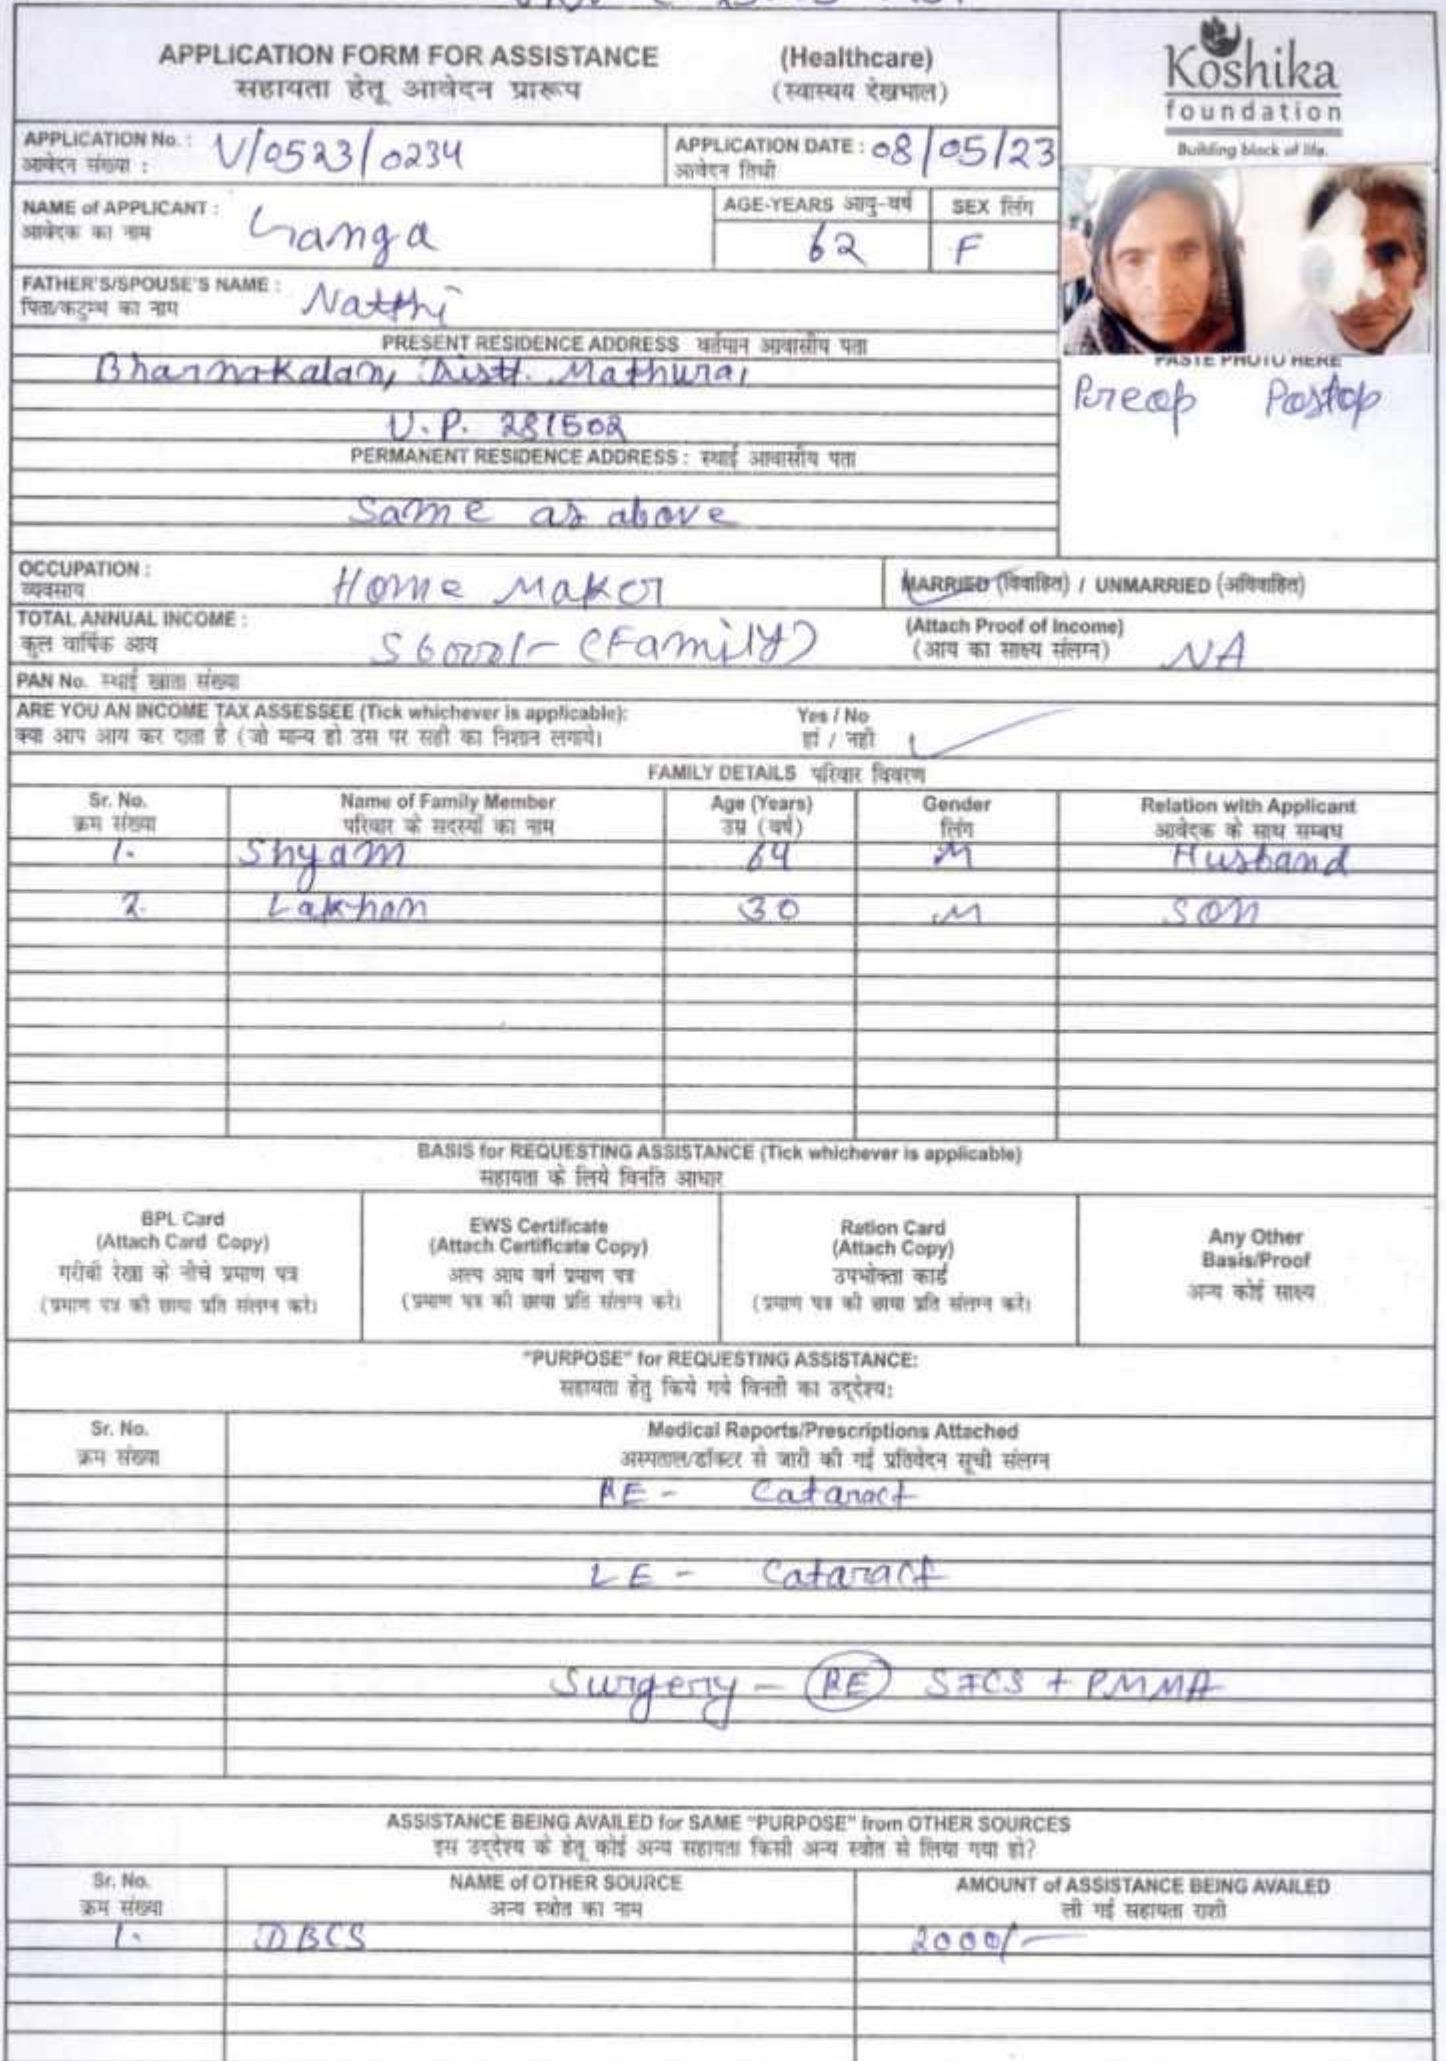 APPLICATION FORM FOR ASSISTANCE (Healthcare)
सहायता हेतू आवेदन प्रारूप (स्वास्थय देखभाल)
Koshika
foundation
Building block of life.
APPLICATION No. : V/0523/0234
आवेदन संख्या :
APPLICATION DATE : 08/05/23
आवेदन तिथी
NAME of APPLICANT : Ganga
आवेदक का नाम
AGE-YEARS आयु-वर्ष 62
SEX लिंग F
FATHER'S/SPOUSE'S NAME : Natthi
पिता/कटुम्ब का नाम
PRESENT RESIDENCE ADDRESS वर्तमान आवासीय पता
Bharnakalan, Distt. Mathura,
U.P. 281502
PASTE PHOTO HERE
Preop Postop
PERMANENT RESIDENCE ADDRESS : स्थाई आवासीय पता
Same as above
OCCUPATION : Home Maker
व्यवसाय
MARRIED (विवाहित) / UNMARRIED (अविवाहित)
TOTAL ANNUAL INCOME : (Family)
कुल वार्षिक आय
(Attach Proof of Income) NA
(आय का साक्ष्य संलग्न)
PAN No. स्थाई खाता संख्या
ARE YOU AN INCOME TAX ASSESSEE (Tick whichever is applicable): Yes / No
क्या आप आय कर दाता है (जो मान्य हो उस पर सही का निशान लगाये। हां / नही
FAMILY DETAILS परिवार विवरण
Sr. No. Name of Family Member Age (Years) Gender Relation with Applicant
क्रम संख्या परिवार के सदस्यों का नाम उम्र (वर्ष) लिंग आवेदक के साथ सम्बध
1. Shyam 64 M Husband
2. Lakhan 30 M Son
BASIS for REQUESTING ASSISTANCE (Tick whichever is applicable)
सहायता के लिये विनति आधार
BPL Card
(Attach Card Copy)
गरीबी रेखा के नीचे प्रमाण पत्र
(प्रमाण पत्र की छाया प्रति संलग्न करे।
EWS Certificate
(Attach Certificate Copy)
अल्प आय वर्ग प्रमाण पत्र
(प्रमाण पत्र की छाया प्रति संलग्न करे।
Ration Card
(Attach Copy)
उपभोक्ता कार्ड
(प्रमाण पत्र की छाया प्रति संलग्न करे।
Any Other
Basis/Proof
अन्य कोई साक्ष्य
"PURPOSE" for REQUESTING ASSISTANCE:
सहायता हेतु किये गये विनती का उद्देश्य:
Sr. No. Medical Reports/Prescriptions Attached
क्रम संख्या अस्पताल/डॉक्टर से जारी की गई प्रतिवेदन सूची संलग्न
RE - Cataract
LE - Cataract
Surgery - RE SICS + PMMA
ASSISTANCE BEING AVAILED for SAME "PURPOSE" from OTHER SOURCES
इस उद्देश्य के हेतू कोई अन्य सहायता किसी अन्य स्त्रोत से लिया गया हो?
Sr. No. NAME of OTHER SOURCE AMOUNT of ASSISTANCE BEING AVAILED
क्रम संख्या अन्य स्त्रोत का नाम ली गई सहायता राशी
1. DBCS 2000/-